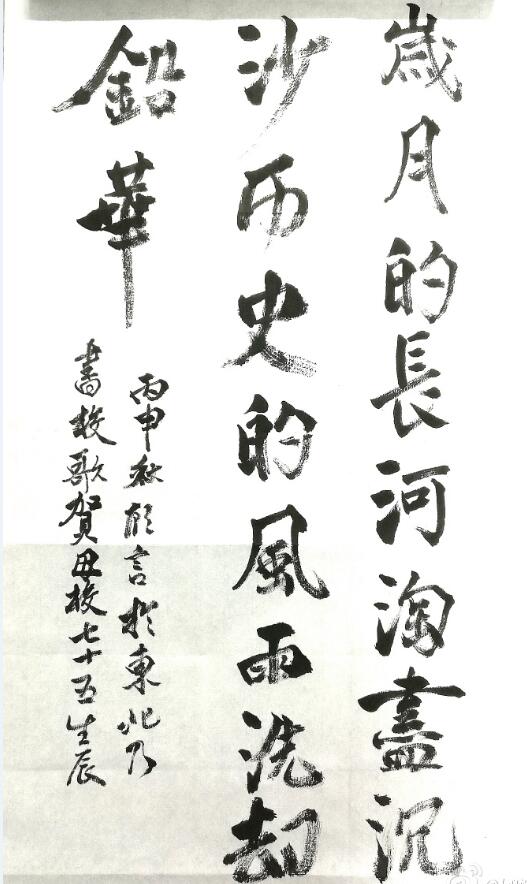 歲月的長河淘盡沉
沙而史的風雨洗却
鉛華
丙申秋言於東北乃
書校歌賀母校七十五生辰